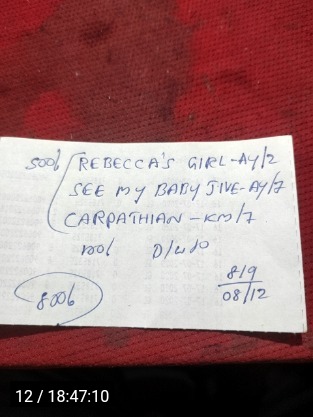 500/ REBECCA'S GIRL-AY/2
SEE MY BABY JIVE-AY/7
CARPATHIAN-KM/7
100/ D/W 10
800/
819
08/12
12 / 18:47:10